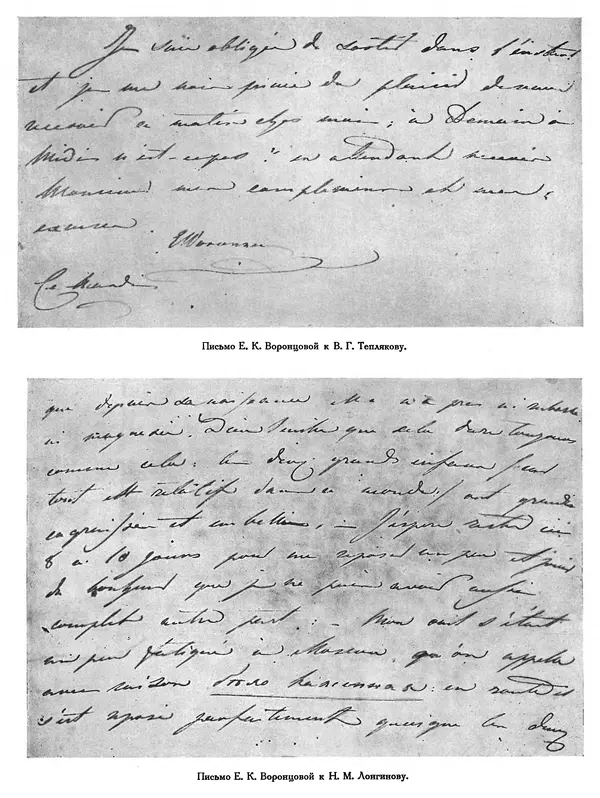 Je suis obligée de sortir dans l'instant
et je me vois privée du plaisir de vous
recevoir ce matin chez moi; à Demain à
Midi n'est-ce pas? en attendant recevez
Monsieur mes complimens et mes
excuses.
EWoronzow
Ce Mardi
Письмо Е. К. Воронцовой к В. Г. Теплякову.
que depuis sa naissance elle n'a pris ni
ni magnésie. Dieu veuille que cela dure toujours
comme cela: les deux grands enfans (car
tout est relatif dans ce monde) ont grandi
engraissé et embelli. — J'espère rester ici
8 à 10 jours pour me reposer un peu et jouir
du bonheur que je ne puis avoir aussi
complet autre part: — Mon s'étant
un peu fatigué à Moscou, qu'on appelle
avec raison en route et
s'est reposé parfaitement quoique les deux
Письмо Е. К. Воронцовой к Н. М. Лонгинову.